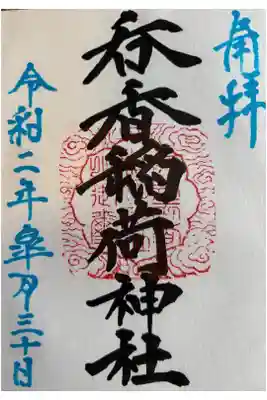 拝
呑香稲荷神社
令和二年皐月三十日